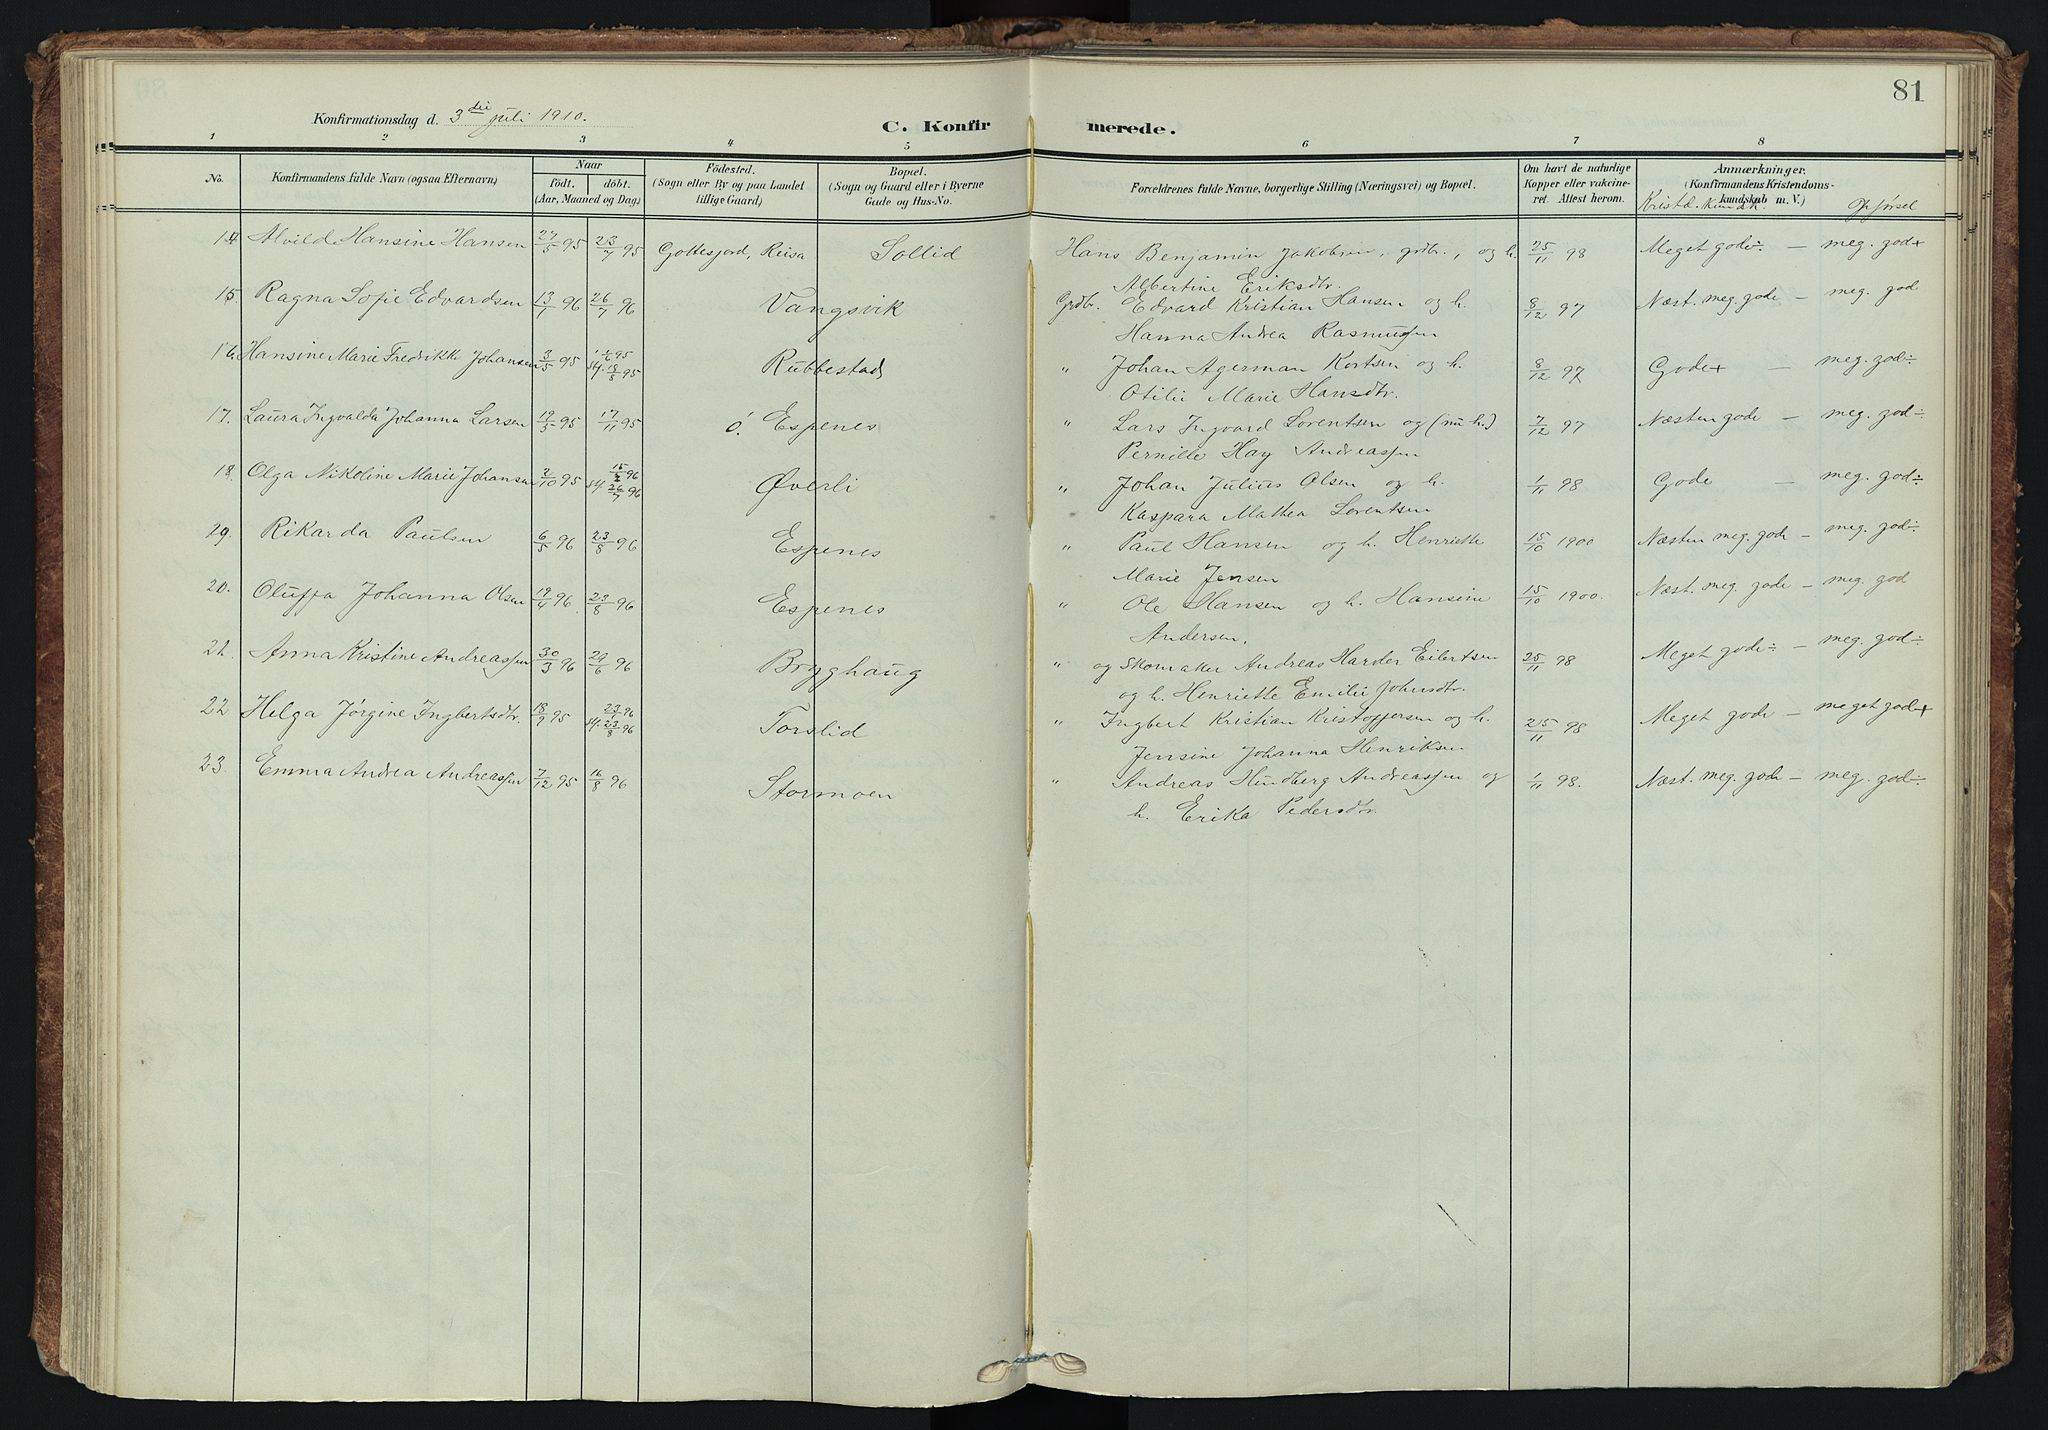 81
Konfirmationsdag d. 3die juli 1910.
C. Konfirmerede.
1 2 3 4 5 6 7 8
No.
Konfirmandens fulde Navn (ogsaa Efternavn).
Naar
födt. döbt.
(Aar, Maaned og Dag.)
Födested.
(Sogn eller By og paa Landet
tillige Gaard)
Bopæl.
(Sogn og Gaard eller i Byerne
Gade og Hus-No.
Forældrenes fulde Navne, borgerlige Stilling (Næringsvei) og Bopæl.
Om havt de naturlige
Kopper eller vakcine-
ret. Attest herom.
Anmærkninger,
(Konfirmandens Kristendoms-
kundskab m. V.)
Kristd. kundsk. Opførsel
14 Alvilde Hansine Hansen 27/5 95 23/7 95 Gottesjord, Reisa Sollid Hans Benjamin Jakobsen, grdbr., og h. 25/11 98 Meget gode÷ — meg. god+
Albertine Eriksdtr.
15. Ragna Sofie Edvardsen 13/1 96 26/7 96 Vangsvik Grdbr. Edvard Kristian Hansen og h. 8/12 97 Næst. meg. gode — meg. god
Hanna Andrea Rasmussen
16. Hansine Marie Fredrikke Johansen 3/5 95 1/6 95 Rubbestad " Johan Agerman Kortsen og h. 8/12 97 Gode+ — meg. god÷
st. 18/8 95
Otilie Marie Hansdtr.
17. Laura Ingvalda Johanna Larsen 19/5 95 17/11 95 Espenes " Lars Ingvard Lorentsen og (nu h.) 7/12 97 Næsten gode — meg. god÷
Pernille Hay Andreassen
18. Olga Nikoline Marie Johansen 2/10 95 15/2 96 Øverli " Johan Julius Olsen og h. 1/11 98 Gode — meg. god÷
st. 26/7 96
Kaspara Mathea Lorentsen
29. Rikarda Paulsen 6/5 96 23/8 96 Espenes " Paul Hansen og h. Henriette 15/10 1900 Næsten meg. gode — meg. god÷
Marie Jensen
20. Oluffa Johanna Olsen 19/4 96. 23/8 96 Espenes " Ole Hansen og h. Hansine 15/10 1900. Næst. meg. gode — meg. god
Andersen.
21. Anna Kristine Andreassen 30/3 96 29/6 96 Brygghaug " og Skomaker Andreas Harder Eilertsen 25/11 98 Meget gode÷ — meg. god÷
og h. Henriette Emilie Johnsdtr.
22 Helga Jørgine Ingbertsdtr. 18/9 95 Torslid " Ingbert Kristian Kristoffersen og h. 25/11 98 Meget gode — meget god+
st. 23/8 96
Jensine Johanna Henriksen
23. Emma Andrea Andreassen 7/12 95 16/8 96 Stormoen " Andreas Hundberg Andreassen og 1/11 98. Næst. meg. gode — meg. god÷
h. Erika Pedersdtr.